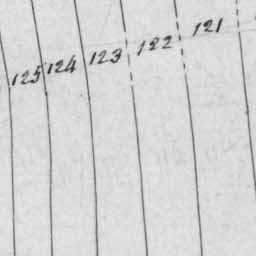 125 124 123 122 121